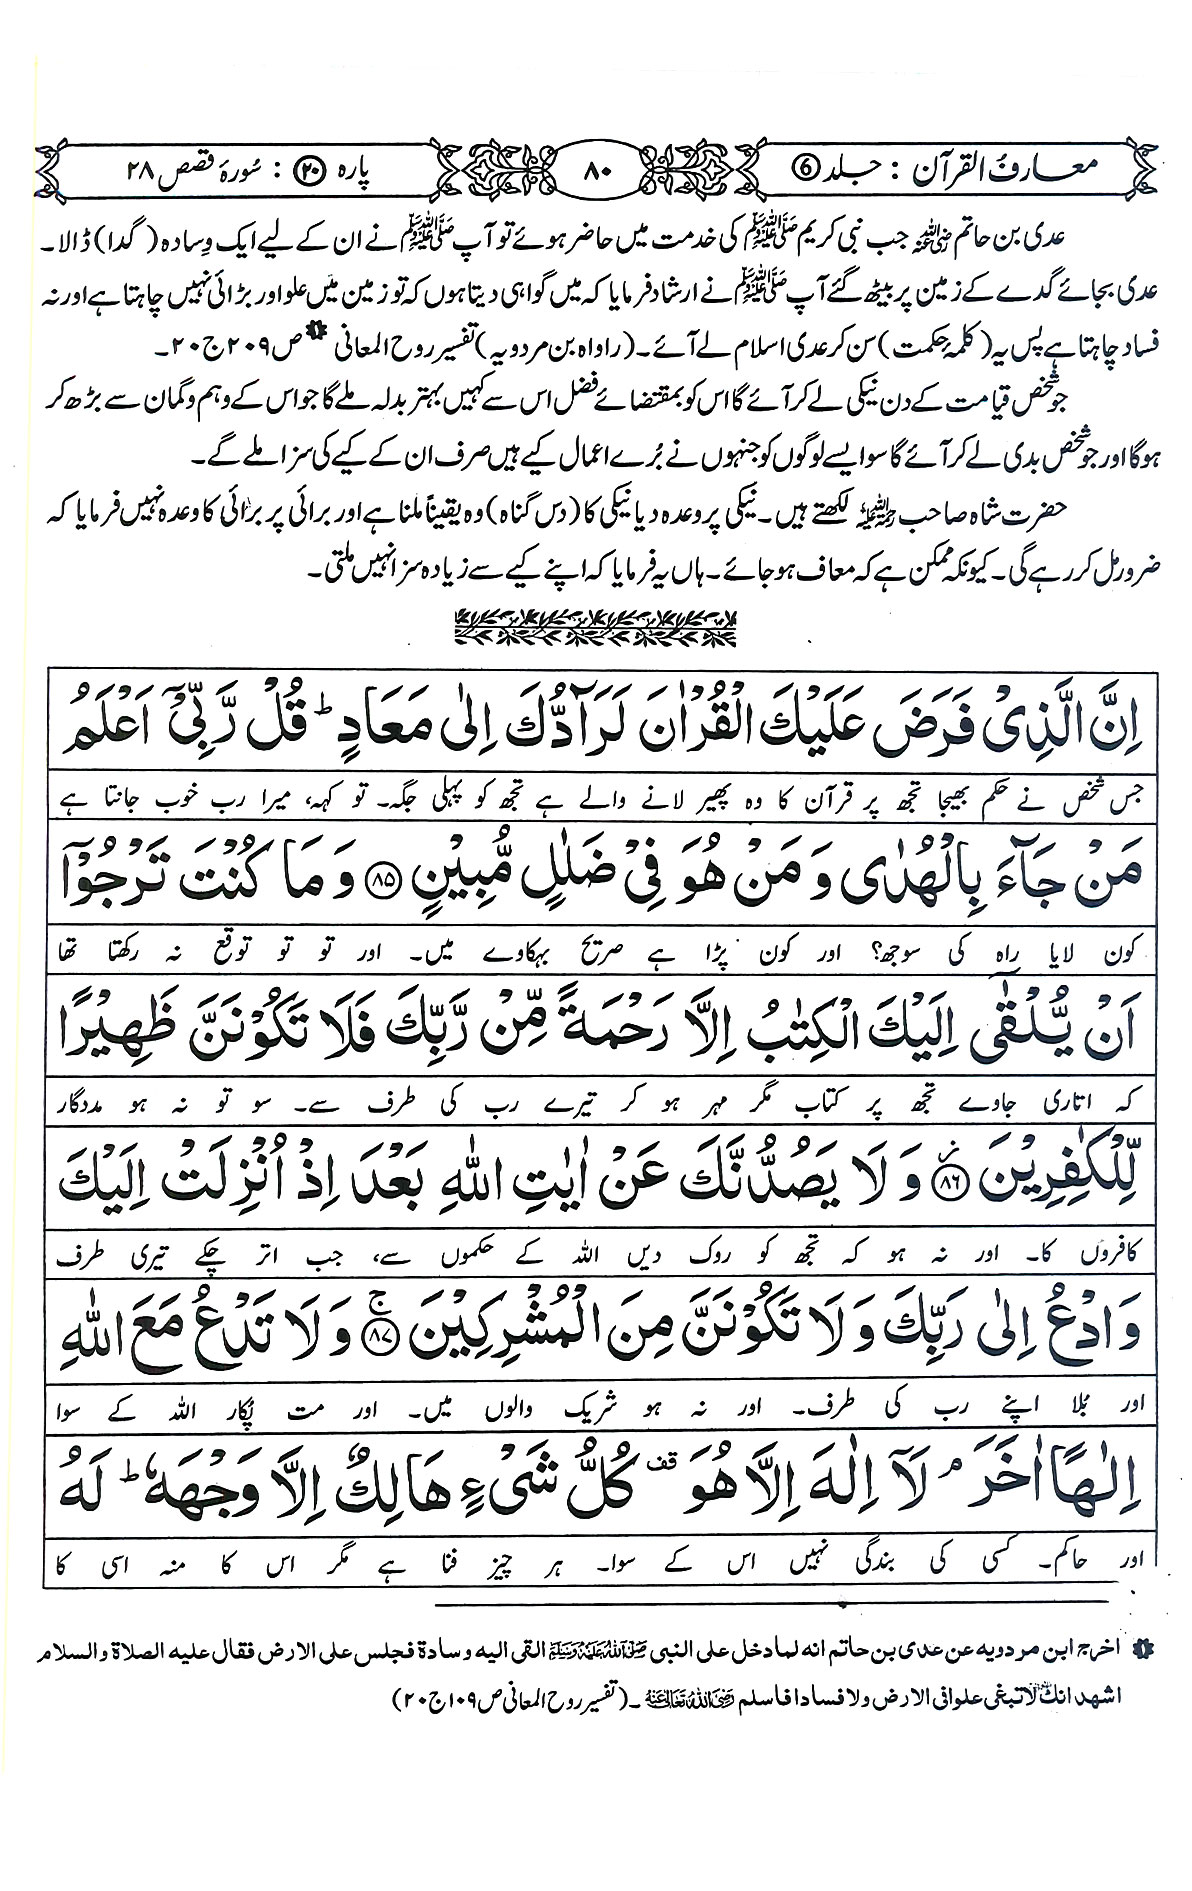 معارفُ القرآن : جلد 6 ۸۰ پارہ ۲۰ : سُورۂ قصص ۲۸
عدی بن حاتم رضی اللہ عنہ جب نبی کریم ﷺ کی خدمت میں حاضر ہوئے تو آپ ﷺ نے ان کے لیے ایک وِسادہ (گدا) ڈالا۔
عدی بجائے گدے کے زمین پر بیٹھ گئے آپ ﷺ نے ارشاد فرمایا کہ میں گواہی دیتا ہوں کہ تو زمین میں علو اور بڑائی نہیں چاہتا ہے اور نہ
فساد چاہتا ہے پس یہ (کلمۂ حکمت) سن کر عدی اسلام لے آئے۔ (راواہ بن مردویہ) تفسیر روح المعانی ۱ ص ۲۰۹ ج ۲۰۔
جو شخص قیامت کے دن نیکی لے کر آئے گا اس کو بمقتضائے فضل اس سے کہیں بہتر بدلہ ملے گا جو اس کے وہم وگمان سے بڑھ کر
ہوگا اور جو شخص بدی لے کر آئے گا سو ایسے لوگوں کو جنہوں نے بُرے اعمال کیے ہیں صرف ان کے کیے کی سزا ملے گے۔
حضرت شاہ صاحب رحمہ اللہ لکھتے ہیں۔ نیکی پر وعدہ دیا نیکی کا (دس گناہ) وہ یقیناً ملنا ہے اور برائی پر برائی کا وعدہ نہیں فرمایا کہ
ضرور مل کر رہے گی۔ کیونکہ ممکن ہے کہ معاف ہو جائے۔ ہاں یہ فرمایا کہ اپنے کیے سے زیادہ سزا نہیں ملتی۔
اِنَّ الَّذِیْ فَرَضَ عَلَیْكَ الْقُرْاٰنَ لَرَآدُّكَ اِلٰی مَعَادٍ ؕ قُلْ رَّبِّیْۤ اَعْلَمُ
جس شخص نے حکم بھیجا تجھ پر قرآن کا وہ پھیر لانے والے ہے تجھ کو پہلی جگہ۔ تو کہہ، میرا رب خوب جانتا ہے
مَنْ جَآءَ بِالْهُدٰی وَ مَنْ هُوَ فِیْ ضَلٰلٍ مُّبِیْنٍ ۸۵ وَ مَا كُنْتَ تَرْجُوْۤا
کون لایا راہ کی سوجھ؟ اور کون پڑا ہے صریح بہکاوے میں۔ اور تو تو توقع نہ رکھتا تھا
اَنْ یُّلْقٰۤی اِلَیْكَ الْكِتٰبُ اِلَّا رَحْمَةً مِّنْ رَّبِّكَ فَلَا تَكُوْنَنَّ ظَهِیْرًا
کہ اتاری جاوے تجھ پر کتاب مگر مہر ہو کر تیرے رب کی طرف سے۔ سو تو نہ ہو مددگار
لِّلْكٰفِرِیْنَ ۸۶ وَ لَا یَصُدُّنَّكَ عَنْ اٰیٰتِ اللّٰهِ بَعْدَ اِذْ اُنْزِلَتْ اِلَیْكَ
کافروں کا۔ اور نہ ہو کہ تجھ کو روک دیں اللہ کے حکموں سے، جب اتر چکے تیری طرف
وَ ادْعُ اِلٰی رَبِّكَ وَ لَا تَكُوْنَنَّ مِنَ الْمُشْرِكِیْنَ ۸۷ ۚ وَ لَا تَدْعُ مَعَ اللّٰهِ
اور بُلا اپنے رب کی طرف۔ اور نہ ہو شریک والوں میں۔ اور مت پُکار اللہ کے سوا
اِلٰهًا اٰخَرَ ۘ لَاۤ اِلٰهَ اِلَّا هُوَ ۫ كُلُّ شَیْءٍ هَالِكٌ اِلَّا وَجْهَهٗ ؕ لَهُ
اور حاکم۔ کسی کی بندگی نہیں اس کے سوا۔ ہر چیز فنا ہے مگر اس کا منہ اسی کا
۱ اخرج ابن مردویه عن عدی بن حاتم انه لما دخل علی النبی صلی الله علیه وسلم القی الیه وسادة فجلس علی الارض فقال علیه الصلاة والسلام
اشهد انك لا تبغی علوا فی الارض ولا فسادا فاسلم رضی الله تعالی عنه۔ (تفسیر روح المعانی ص ۱۰۹ ج ۲۰)